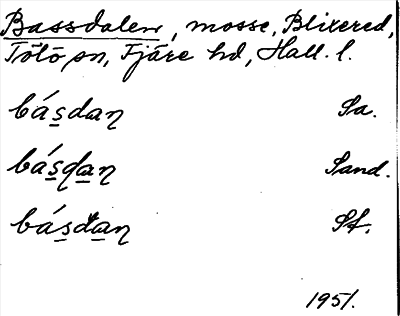 Bassdalen, mosse, Blixered,
Tölö sn, Fjäre hd, Hall. l.
básdaŋ Sa.
básdaŋ Sand.
básdaŋ St.
1951.